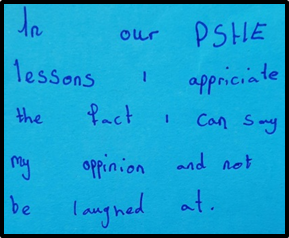 In our PSHE
lessons I appriciate
the fact I can say
my oppinion and not
be laughed at.